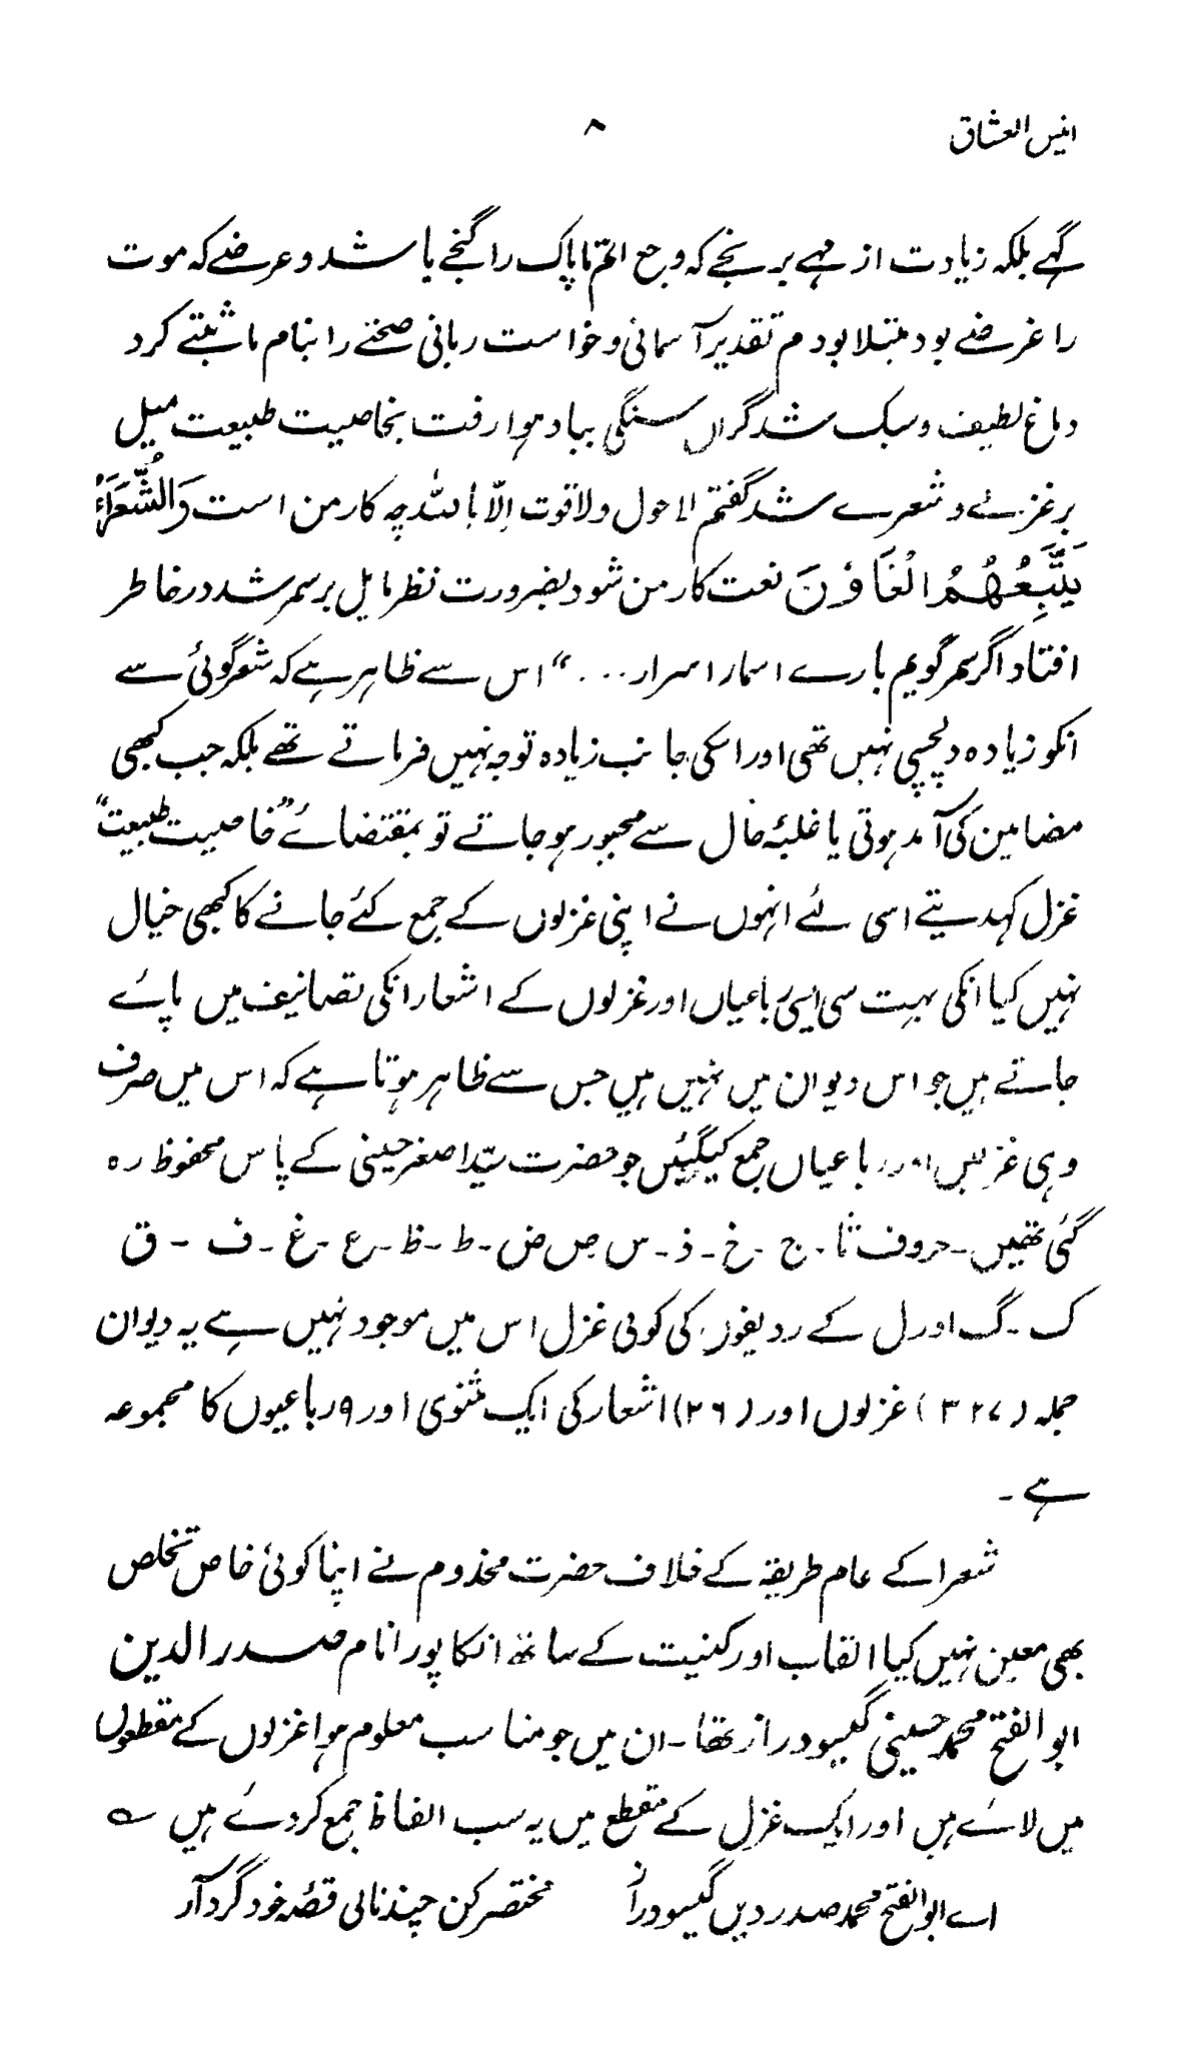 انیس العشاق
۸
گہے بلکہ زیادت از مہے بر نجے کہ وجع اتم ناپاک را گنجے باشد و عرضے کہ موت
را غرضے بود مبتلا بودم تقدیر آسمانی و خواست ربانی صحتے را بنام ما ثبتے کرد
دماغ لطیف و سبک شد گراں سنگی بباد ہوا رفت بخاصیت طبیعت میل
بر غزلے و شعرے شد گفتم لاحول ولا قوت اِلّا باللہ چہ کار من است وَالشُّعَرَاءُ
یَتَّبِعُهُمُ الْغَاوٗنَ نعت کار من شود بضرورت نظر مایل بر سمر شد در خاطر
افتاد اگر سمر گویم بارے اسمار اسرار ..." اس سے ظاہر ہے کہ شعر گوئی سے
انکو زیادہ دلچسپی نہیں تھی اور اسکی جانب زیادہ توجہ نہیں فرماتے تھے بلکہ جب کبھی
مضامین کی آمد ہوتی یا غلبۂ حال سے مجبور ہو جاتے تو بمقتضائے "خاصیت طبیعت"
غزل کہدیتے اسی لئے انہوں نے اپنی غزلوں کے جمع کئے جانے کا کبھی خیال
نہیں کیا انکی بہت سی ایسی رباعیاں اور غزلوں کے اشعار انکی تصانیف میں پائے
جاتے ہیں جو اس دیوان میں نہیں ہیں جس سے ظاہر ہوتا ہے کہ اس میں صرف
وہی غزلیں اور رباعیاں جمع کیگئیں جو حضرت سیّد اصغر حسینی کے پاس محفوظ رہ
گئی تھیں۔ حروف ثا۔ ج ۔ خ ۔ ذ ۔ س ص ض ۔ ط ۔ ظ ۔ ع ۔ غ ۔ ف ۔ ق
ک ۔ گ اور ل کے ردیفوں کی کوئی غزل اس میں موجود نہیں ہے یہ دیوان
جملہ (۳۲۷) غزلوں اور (۲۶) اشعار کی ایک مثنوی اور ۹ رباعیوں کا مجموعہ
ہے ۔
شعرا کے عام طریقہ کے خلاف حضرت مخدوم نے اپنا کوئی خاص تخلص
بھی معین نہیں کیا القاب اور کنیت کے ساتھ انکا پورا نام صدر الدین
ابو الفتح محمد حسینی گیسو دراز تھا۔ ان میں جو مناسب معلوم ہوا غزلوں کے مقطعوں
میں لائے ہیں اور ایک غزل کے مقطع میں یہ سب الفاظ جمع کردئے ہیں ؎
اے ابو الفتح محمد صدر دیں گیسو دراز مختصر کن چند نالی قصّہ خود گرد آر